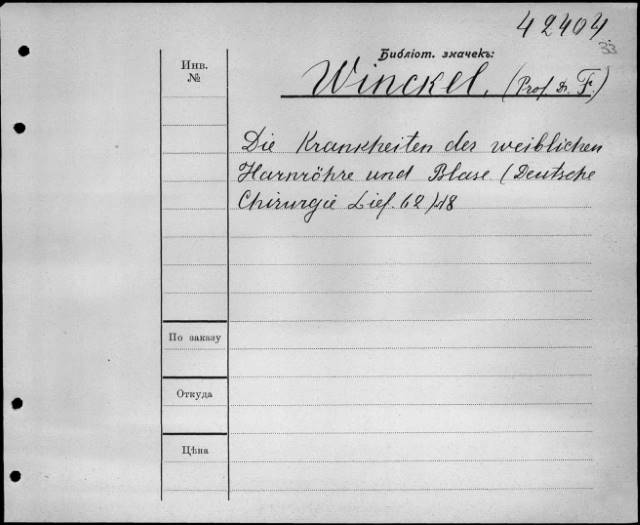 42404
33
Библіот. значекъ:
Инв.
№
Winckel, (Prof. Dr. F.)
Die Krankheiten des weiblichen
Harnröhre und Blase (Deutsche
Chirurgie Lief. 62) 48
По заказу
Откуда
Цѣна